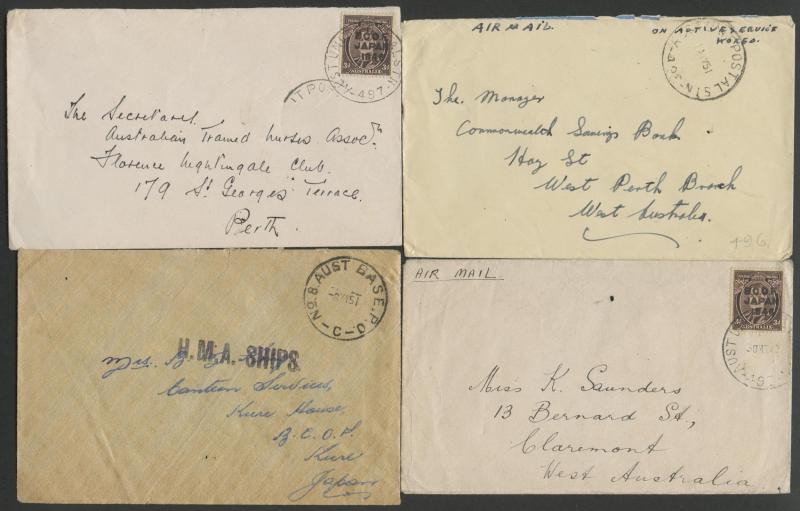 B.C.O.F.
JAPAN
1946
AUSTRALIA
3d
AUST UNIT POSTAL STN-497
The Secretary.
Australian Trained Nurses Assocn
Florence Nightingale Club.
179 St. Georges Terrace.
Perth.
AIR MAIL.
ON ACTIVE SERVICE
KOREA.
POSTAL STN
51
The Manager
Commonwealth Savings Bank.
Hay St
West Perth Branch
West Australia.
496
No. 8. AUST BASE. P.O.
51
-C-
H.M.A. SHIPS
Mrs.
Canteen Services,
Kure House,
B.C.O.F.
Kure
Japan
AIR MAIL
B.C.O.F.
JAPAN
1946
AUSTRALIA
3d
AUST
Miss K. Saunders
13 Bernard St,
Claremont
West Australia.